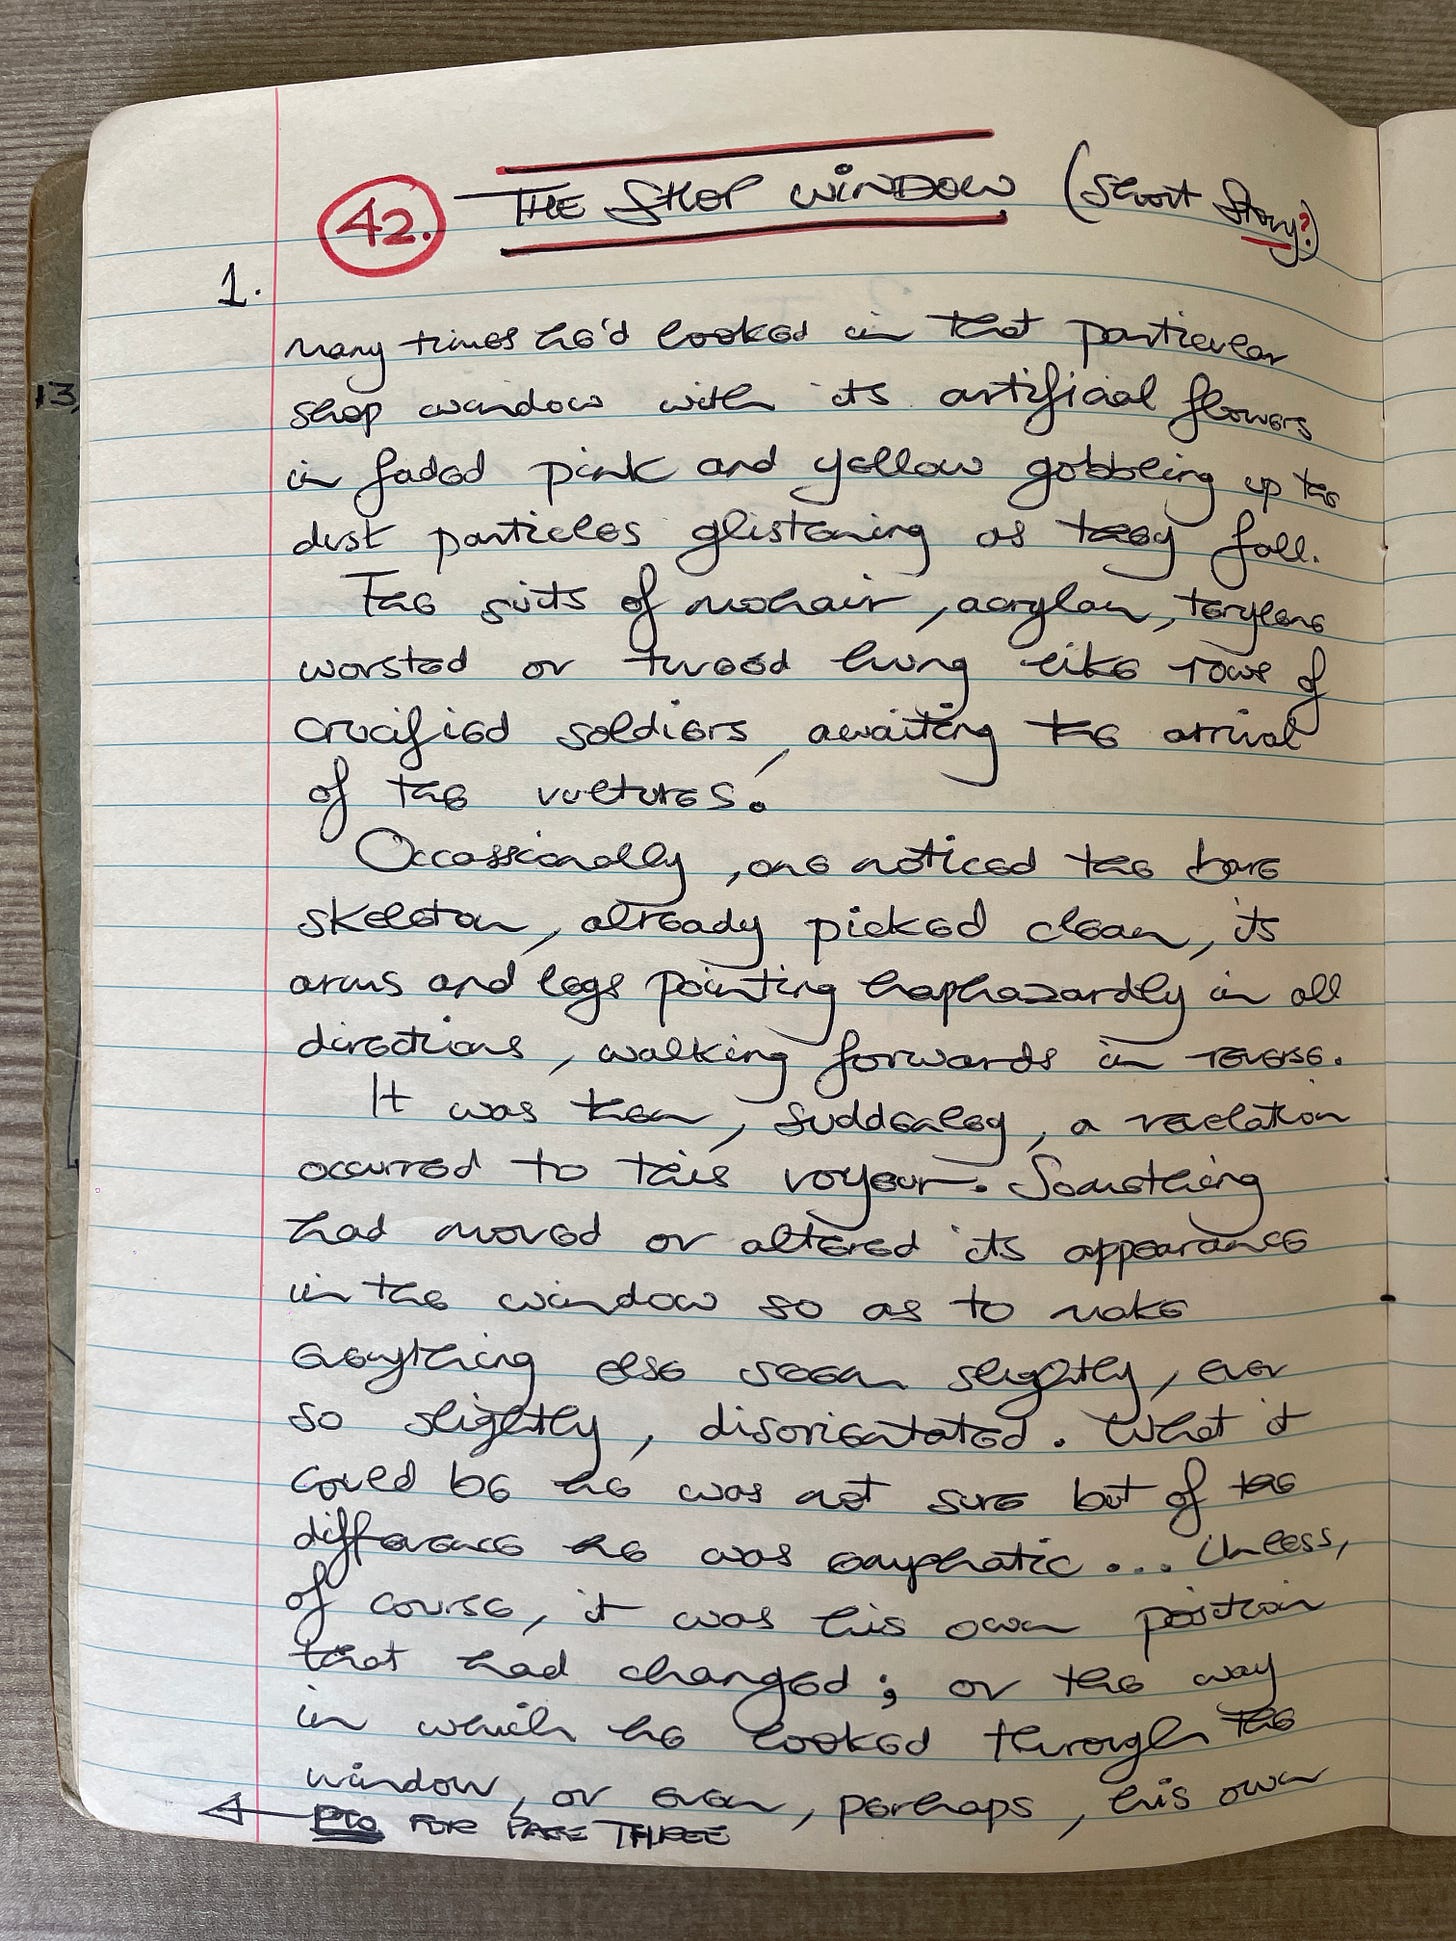 42. THE SHOP WINDOW (Short Story?)
1.
Many times he'd looked in that particular
shop window with its artificial flowers
in faded pink and yellow gobbling up the
dust particles glistening as they fall.
The suits of mohair, acrylan, terylene
worsted or tweed hung like rows of
crucified soldiers, awaiting the arrival
of the vultures.
Occassionally, one noticed the bare
skeleton, already picked clean, its
arms and legs pointing haphazardly in all
directions, walking forwards in reverse.
It was then, suddenley, a revelation
occurred to this voyeur. Something
had moved or altered its appearance
in the window so as to make
everything else seem slightly, ever
so slightly, disorientated. What it
could be he was not sure but of the
difference he was emphatic... Unless,
of course, it was his own position
that had changed; or the way
in which he looked through the
window, or even, perhaps, his own
PTO FOR PAGE THREE
13,